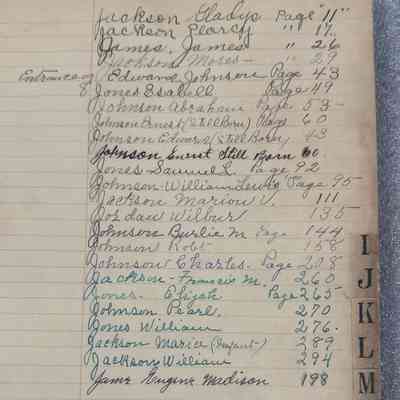 Jackson Gladys Page "11"
Jackson Pearcy " 17
James, James " 26
Jackson Moses - " 29
Entrance of Edward Johnson Page 43
8 Jones Esabell Page 49
Johnson Abraham Page 53-
Johnson Ernest (Still Born) Page 60
Johnson Edward (Still Born) 43
Johnson Ernst Still Born 60.
Jones Samuel L. Page 92
Johnson William Lewis Page 95
Jackson Marion V. 111
Jordan Wilbur 135
Johnson Burlie M Page 144
Johnson Robt 158
Johnson Charles. Page 208
Jackson - Francis M. 260
Jones. Elijah Page 265
Johnson Pearl. 270
Jones William 276.
Jackson Maria (Infant) 289
Jackson William 294
Jame Eugene Madison 198
I
J
K
L
M